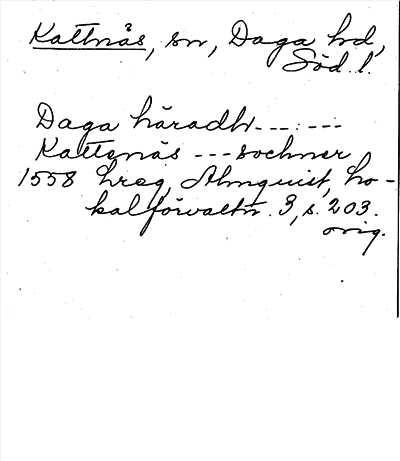 Kattnäs, sn, Daga hd,
Söd. l.
Daga häradh --- : ---
Kattenäs --- sochner
1558 hreg, Almquist, Lo-
kalförvaltn. 3, s. 203.
orig.